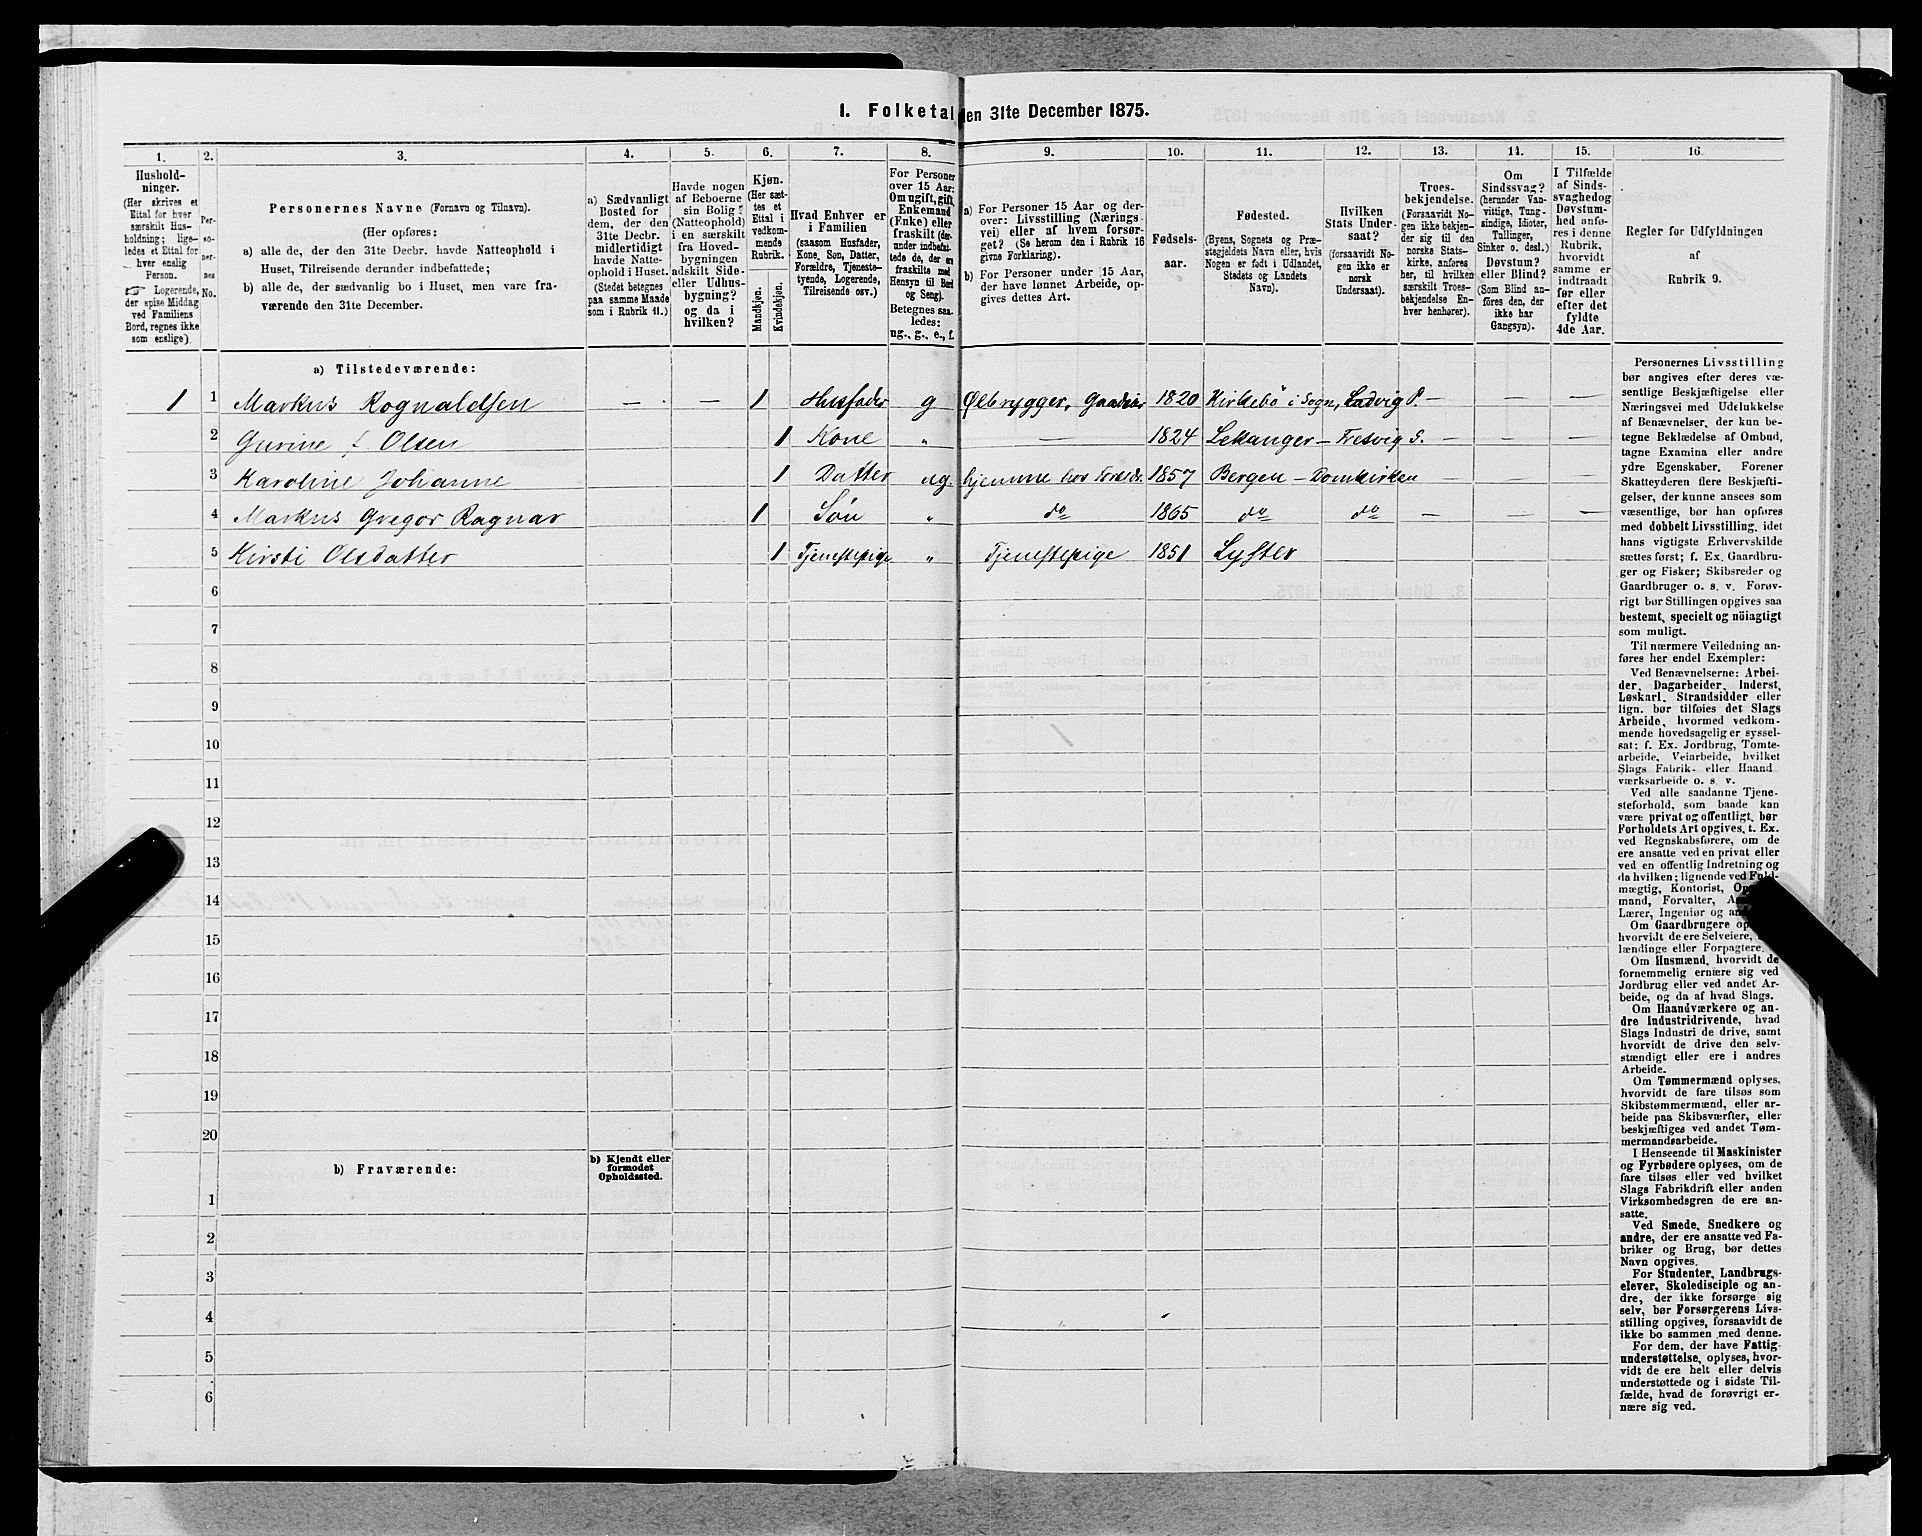 1. Folketal den 31te December 1875.
1.
2.
3.
4.
5.
6.
7.
8.
9.
10.
11.
12.
13.
14.
15.
16.
Hushold-
ninger.
(Her skrives et
Ettal for hver
særskilt Hus-
holdning; lige-
ledes et Ettal for
hver enslig
Person.
☞ Logerende,
der spise Middag
ved Familiens
Bord, regnes ikke
som enslige).
Per-
so-
ner-
nes
No.
Personernes Navne (Fornavn og Tilnavn).
(Her opføres:
a) alle de, der den 31te Decbr. havde Natteophold i
Huset, Tilreisende derunder indbefattede;
b) alle de, der sædvanlig bo i Huset, men vare fra-
værende den 31te December.
a) Sædvanligt
Bosted for
dem, der den
31te Decbr.
midlertidigt
havde Natte-
ophold i Huset.
(Stedet betegnes
paa samme Maade
som i Rubrik 11.)
Havde nogen
af Beboerne
sin Bolig
(Natteophold)
i en særskilt
fra Hoved-
bygningen
adskilt Side-
eller Udhus-
bygning?
og da i
hvilken?
Kjøn.
(Her sæt-
tes et
Ettal i
vedkom-
mende
Rubrik.
Mandkjøn.
Kvindekjøn.
Hvad Enhver er
i Familien
(saasom Husfader,
Kone, Søn, Datter,
Forældre, Tjeneste-
tyende, Logerende,
Tilreisende osv.)
For Personer
over 15 Aar:
Om ugift, gift,
Enkemand
(Enke) eller
fraskilt (der-
under indbefat-
tede de, der ere
fraskilte med
Hensyn til Bord
og Seng).
Betegnes saa-
ledes:
ug., g., e., f.
a) For Personer 15 Aar og der-
over: Livsstilling (Nærings-
vei) eller af hvem forsør-
get? (Se herom den i Rubrik 16
givne Forklaring).
b) For Personer under 15 Aar,
der have lønnet Arbeide, op-
gives dettes Art.
Fødsels-
aar.
Fødested.
(Byens, Sognets og Præ-
stegjeldets Navn eller, hvis
Nogen er født i Udlandet,
Stedets og Landets
Navn).
Hvilken
Stats Under-
saat?
(forsaavidt No-
gen ikke er
norsk
Undersaat).
Troes-
bekjendelse.
(Forsaavidt No-
gen ikke bekjen-
der sig til den
norske Stats-
kirke, anføres
her, til hvilken
særskilt Troes-
bekjendelse En-
hver henhører).
Om
Sindssvag?
(herunder Van-
vittige, Tung-
sindige, Idioter,
Tullinger,
Sinker o. desl.)
Døvstum?
eller Blind?
(Som Blind an-
føres den, der
ikke har
Gangsyn).
I Tilfælde
af Sinds-
svaghed og
Døvstum-
hed anfø-
res i denne
Rubrik,
hvorvidt
samme er
indtraadt
før eller
efter det
fyldte
4de Aar.
Regler for Udfyldningen
af
Rubrik 9.
a) Tilstedeværende:
1 1 Markus Rognaldsen — — 1 Husfader g Ølbrygger, 1820 Kirkebø i Sogn, Ladvig P. — — —
2 Gurine f. Olsen 1 Kone „ — 1824 Lekanger — Fresvig S. — — —
3 Karoline Johanne 1 Datter ug. hjemme hos 1857 Bergen — Domkirken — — —
4 Markus Gregor Ragnar 1 Søn „ do 1865 do do — — —
5 Kirsti Olsdatter 1 Tjenestepige „ Tjenestepige 1851 Lyster
6
7
8
9
10
11
12
13
14
15
16
17
18
19
20
b) Fraværende:
b) Kjendt eller
formodet
Opholdssted.
1
2
3
4
5
6
Personernes Livsstilling
bør angives efter deres væ-
sentlige Beskjæftigelse eller
Næringsvei med Udelukkelse
af Benævnelser, der kun be-
tegne Beklædelse af Ombud,
tagne Examina eller andre
ydre Egenskaber. Forener
Skatteyderen flere Beskjæfti-
gelser, der kunne ansees som
væsentlige, bør han opføres
med dobbelt Livsstilling, idet
hans vigtigste Erhvervskilde
sættes først; f. Ex. Gaardbru-
ger og Fisker; Skibsreder og
Gaardbruger o. s. v. Forøv-
rigt bør Stillingen opgives saa
bestemt, specielt og nöiagtigt
som muligt.
Til nærmere Veiledning an-
føres her endel Exempler:
Ved Benævnelserne: Arbei-
der, Dagarbeider, Inderst,
Løskarl, Strandsidder eller
lign. bør tilføies det Slags
Arbeide, hvormed vedkom-
mende hovedsagelig er syssel-
sat; f. Ex. Jordbrug, Tomte-
arbeide, Veiarbeide, hvilket
Slags Fabrik- eller Haand
værksarbeide o. s. v.
Ved alle saadanne Tjene-
steforhold, som baade kan
være privat og offentligt, bør
Forholdets Art opgives, t. Ex.
ved Regnskabsførere, om de
ere ansatte ved en privat eller
ved en offentlig Indretning og
da hvilken; lignende ved Fuld-
mægtig, Kontorist, Op
mand, Forvalter, A
Lærer, Ingeniør og an
Om Gaardbrugere op
hvorvidt de ere Selveiere,
lændinge eller Forpagtere.
Om Husmænd, hvorvidt de
fornemmelig ernære sig ved
Jordbrug eller ved andet Ar-
beide, og da af hvad Slags.
Om Haandværkere og an-
dre Industridrivende, hvad
Slags Industri de drive, samt
hvorvidt de drive den selv-
stændigt eller ere i andres
Arbeide.
Om Tømmermænd oplyses,
hvorvidt de fare tilsøs som
Skibstømmermænd, eller ar-
beide paa Skibsværfter, eller
beskjæftiges ved andet Tøm-
mermandsarbeide.
I Henseende til Maskinister
og Fyrbødere oplyses, om de
fare tilsøs eller ved hvilket
Slags Fabrikdrift eller anden
Virksomhedsgren de ere an-
satte.
Ved Smede, Snedkere og
andre, der ere ansatte ved Fa-
briker og Brug, bør dettes
Navn opgives.
For Studenter, Landbrugs-
elever, Skoledisciple og an-
dre, der ikke forsørge sig
selv, bør Forsørgerens Livs-
stilling opgives, forsaavidt de
ikke bo sammen med denne.
For dem, der have Fattig-
understøttelse, oplyses, hvor-
vidt de ere helt eller delvis
understøttede og i sidste Til-
fælde, hvad de forøvrigt er-
nære sig ved.